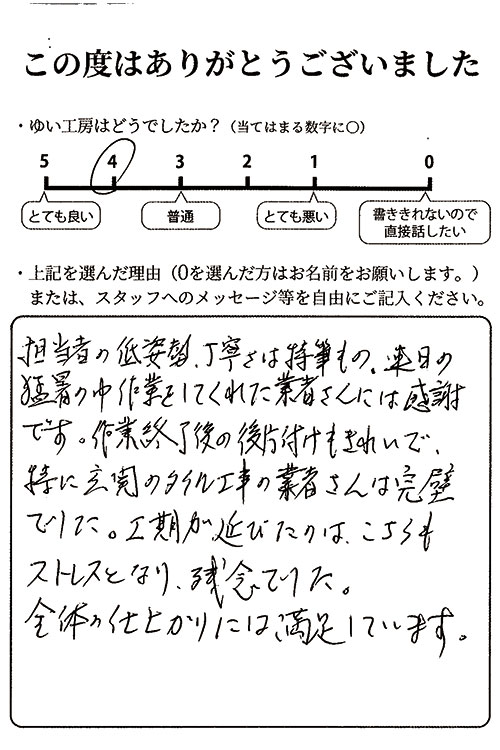 この度はありがとうございました
・ゆい工房はどうでしたか？（当てはまる数字に〇）
5 4 3 2 1 0
とても良い 普通 とても悪い 書ききれないので
直接話したい
・上記を選んだ理由（0を選んだ方はお名前をお願いします。）
または、スタッフへのメッセージ等を自由にご記入ください。
担当者の低姿勢、丁寧さは特筆もの。連日の
猛暑の中作業をしてくれた業者さんには感謝
です。作業終了後の後片付けもきれいで、
特に玄関のタイル工事の業者さんは完璧
でした。工期が延びたのは、こちらも
ストレスとなり、残念でした。
全体の仕上がりには、満足しています。